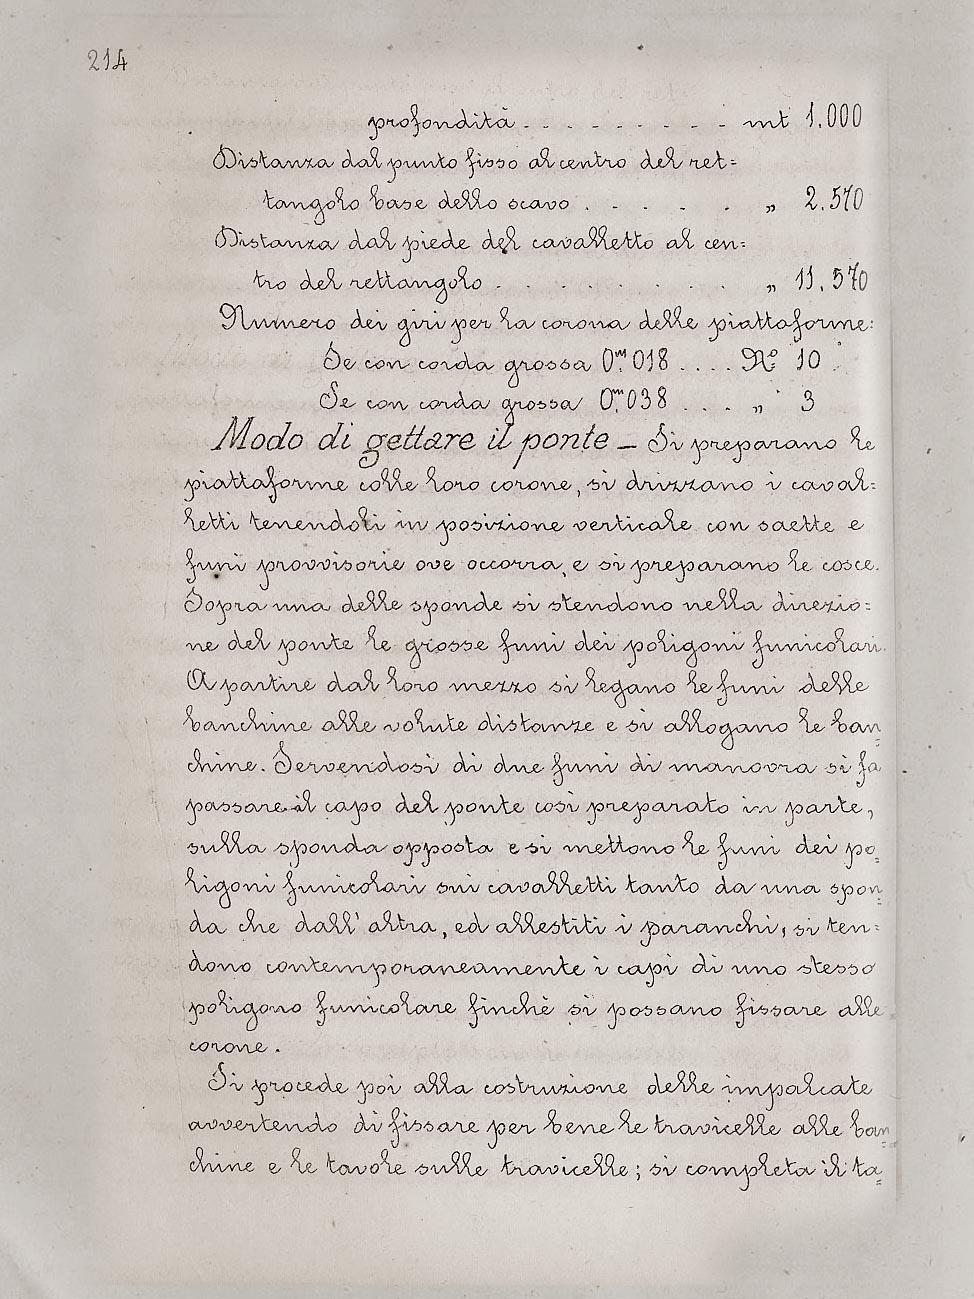 214
profondità . . . . . . . . . mt 1.000
Distanza dal punto fisso al centro del ret=
tangolo base dello scavo . . . . . „ 2.570
Distanza dal piede del cavalletto al cen=
tro del rettangolo . . . . . . . . „ 11.570
Numero dei giri per la corona delle piattaforme:
Se con corda grossa 0,ᵐ018 .... Nº 10
Se con corda grossa 0,ᵐ038 ... „ 3
Modo di gettare il ponte _ Si preparano le
piattaforme colle loro corone, si drizzano i caval=
letti tenendoli in posizione verticale con saette e
funi provvisorie ove occorra, e si preparano le cosce.
Sopra una delle sponde si stendono nella direzio=
ne del ponte le grosse funi dei poligoni funicolari.
A partire dal loro mezzo si legano le funi delle
banchine alle volute distanze e si allogano le ban=
chine. Servendosi di due funi di manovra si fa
passare il capo del ponte così preparato in parte,
sulla sponda opposta e si mettono le funi dei po=
ligoni funicolari sui cavalletti tanto da una spon=
da che dall'altra, ed allestiti i paranchi, si ten=
dono contemporaneamente i capi di uno stesso
poligono funicolare finchè si possano fissare alle
corone.
Si procede poi alla costruzione delle impalcate
avvertendo di fissare per bene le travicelle alle ban=
chine e le tavole sulle travicelle; si completa il ta=